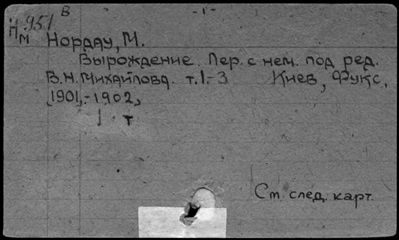 В
- 1 -
Н-951
Нм
Нордау, М.
Вырождение. Пер. с нем. под ред.
В.Н. Михайлова. т. 1-3 Киев, Фукс,
[1901,-1902,
1 т
См. след. карт.